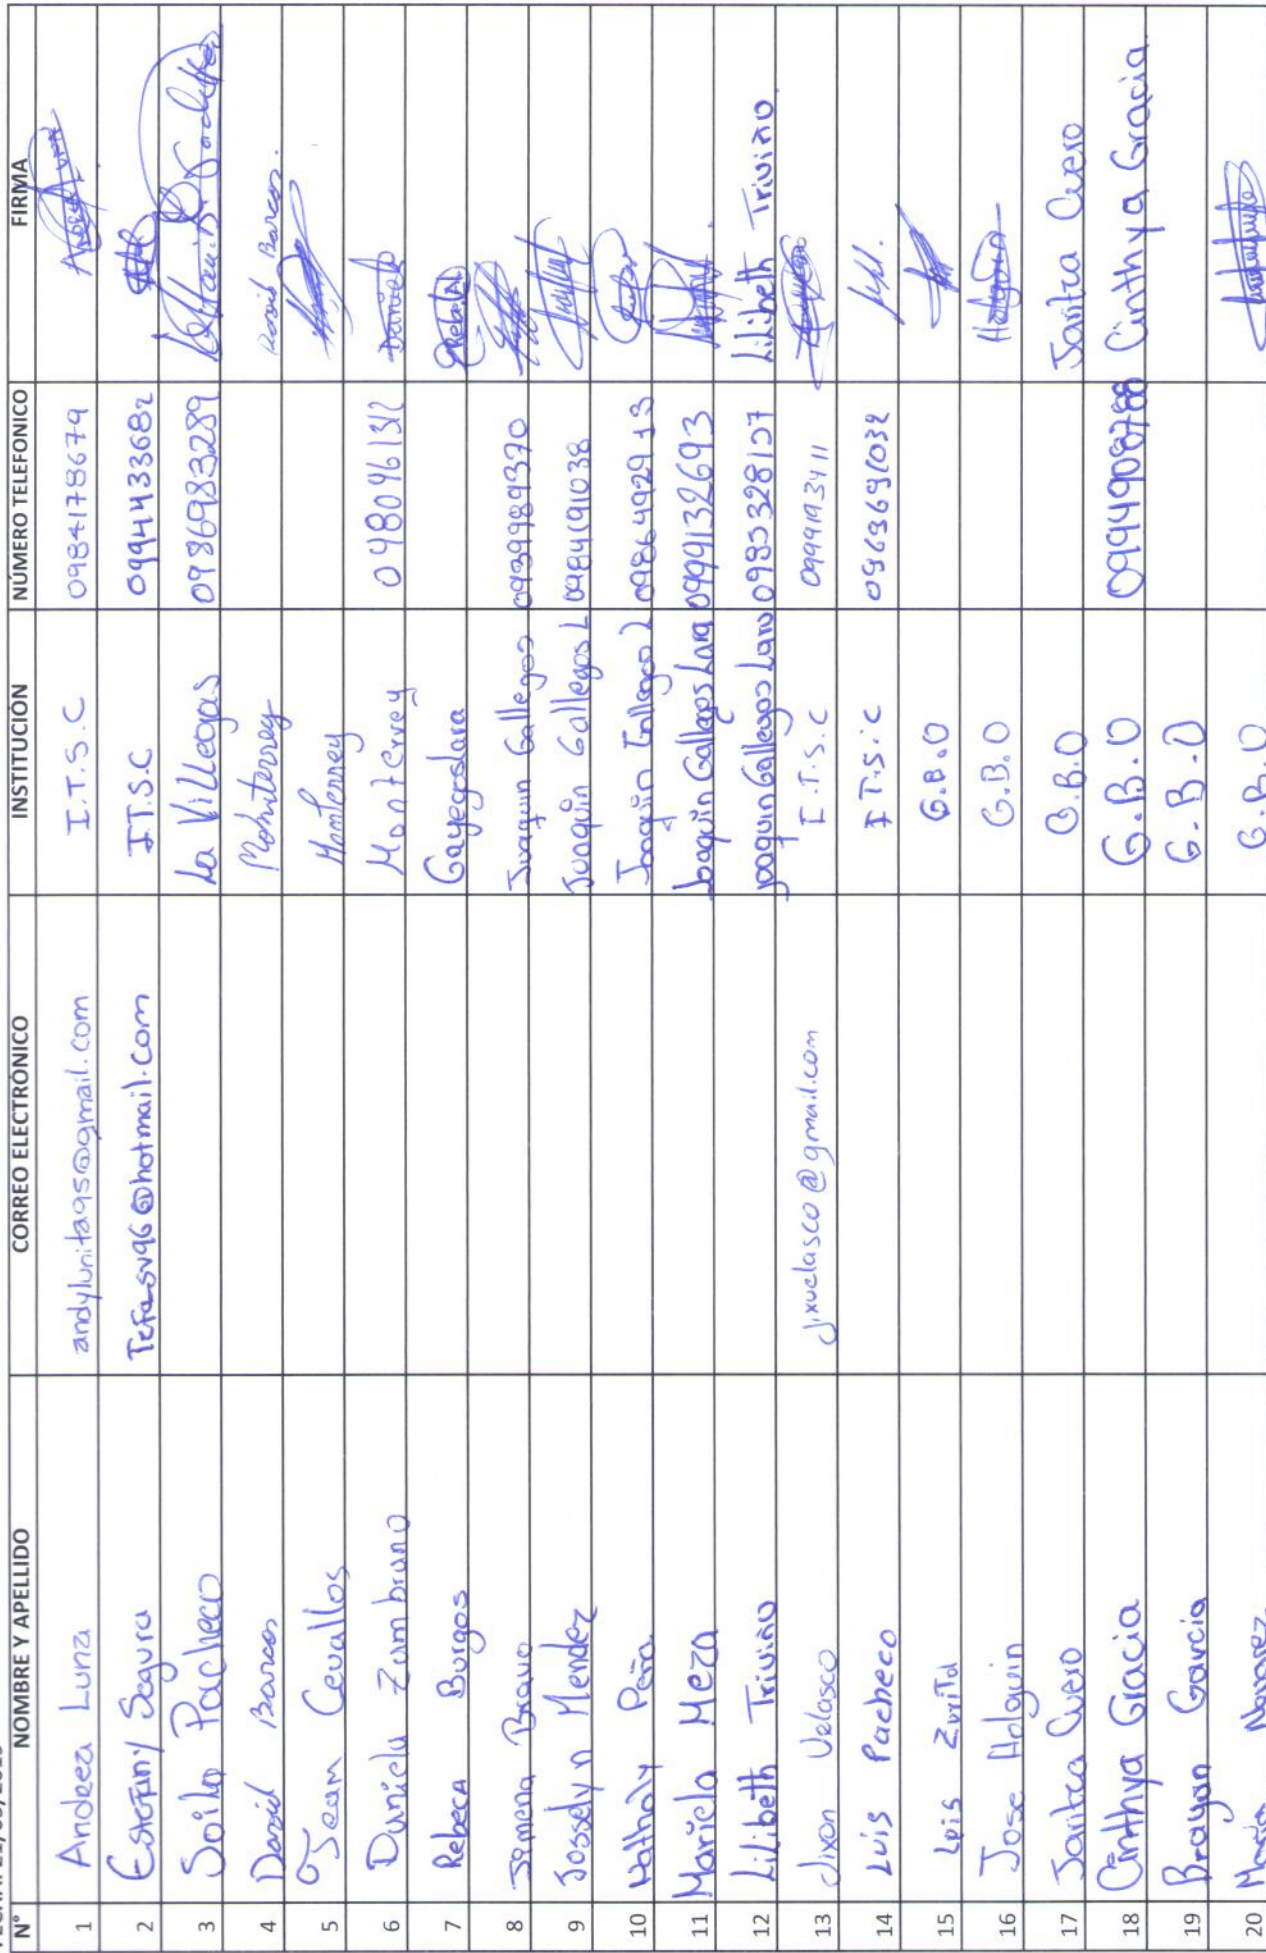 N° NOMBRE Y APELLIDO CORREO ELECTRÓNICO INSTITUCIÓN NÚMERO TELEFONICO FIRMA
1 Andrea Luna andylunita95@gmail.com I.T.S.C 0984178679
2 Estefany Segura Tefa_sv96@hotmail.com I.T.S.C 0994433682
3 Soila Pacheco La Villegas 0986983289
4 David Barcos Monterrey David Barcos.
5 Jean Cevallos Monterrey
6 Daniela Zambrano Monterrey 0480461312 Daniela
7 Rebeca Burgos Gayegoslara
8 Jimena Bravo Juaquin Gallegos 0939989370
9 Josselyn Mendez Juaquin Gallegos L 0984191038
10 Nathaly Peña. Joaquin Gallegos L
11 Mariela Meza Joaquin Gallegos Lara 0999132693
12 Lilibeth Triviño joaquin Gallegos Lara Lilibeth Triviño.
13 Jixon Velasco jixvelasco@gmail.com I.T.S.C 0999193411
14 Luis Pacheco I T.S.C 0963691032
15 Luis Zurita G.B.O
16 Jose Holguin G.B.O Holguin
17 Jaritza Cuero G.B.O Jaritza Cuero
18 Cinthya Gracia G.B.O 0994908788 Cinthya Gracia.
19 Brayan Garcia G.B.O
20 G.B.O